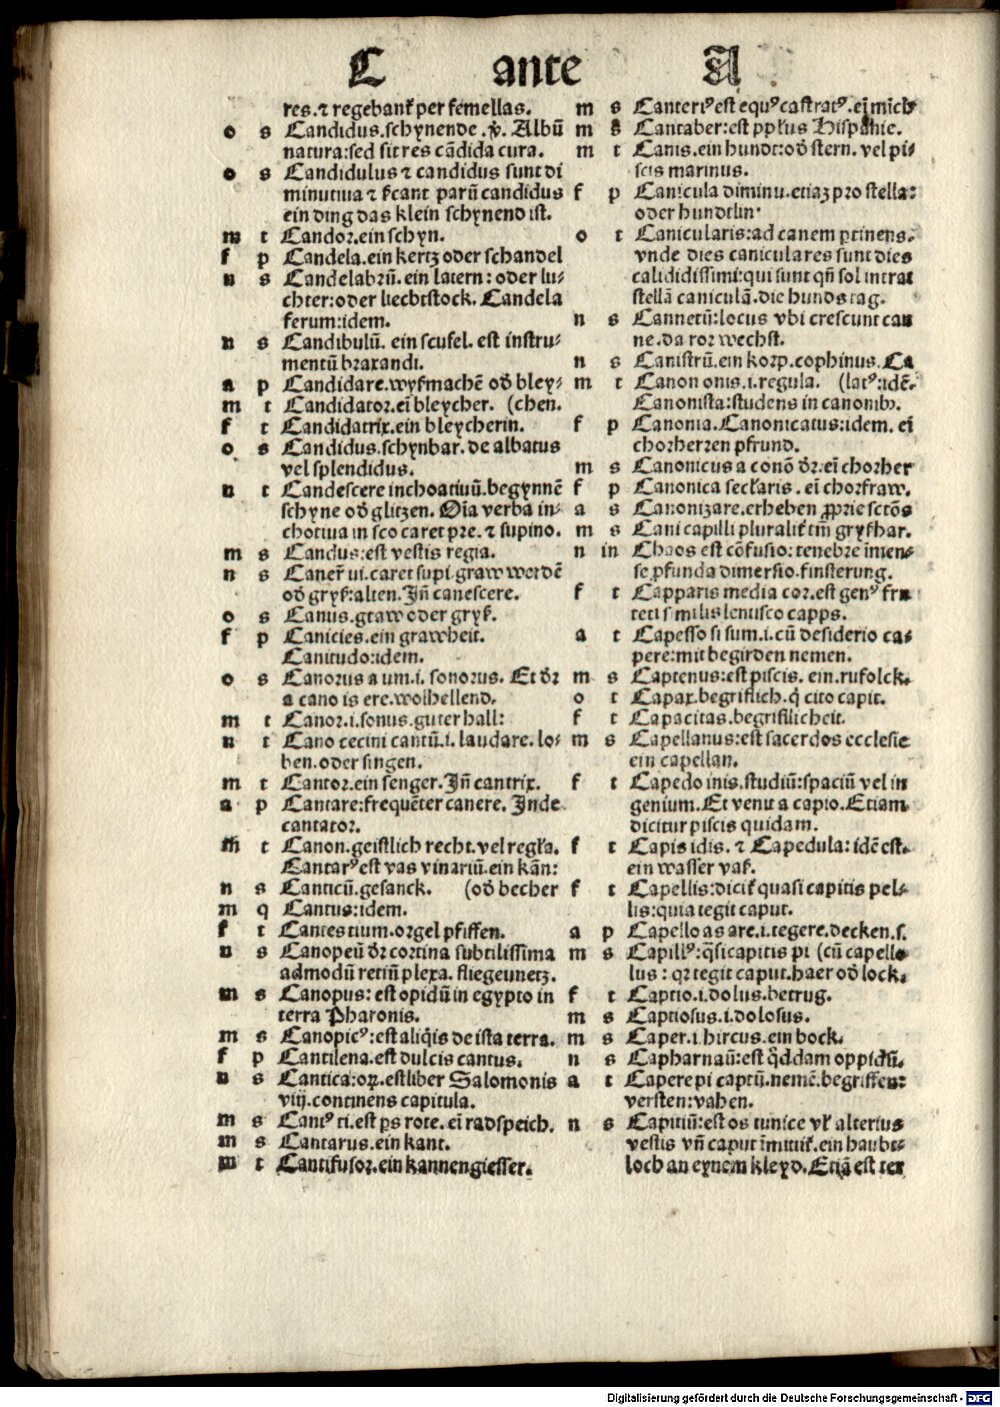 C ante A
res.⁊ regebant᷑ per femellas.
o s Candidus.schynende.v̾. Albũ
natura:sed sit res cãdida cura.
o s Candidulus ⁊ candidus sunt di
minutiua ⁊ s̾cant parũ candidus
ein ding das klein schynend ist.
m t Candor.ein schyn.
f p Candela.ein kertz oder schandel
n s Candelabrũ.ein latern: oder lu⸗
chter:oder liechtstock. Candela
ferum:idem.
n s Candibulũ. ein scufel. est instru⸗
mentũ braxandi.
a p Candidare.wyßmachẽ od̾ bley⸗
m t Candidator.eĩ bleycher. (chen.
f t Candidatrix.ein bleycherin.
o s Candidus.schynbar.de albatus
vel splendidus.
n t Candescere inchoatiuũ.begynnẽ
schyne od̾ glitzen. Oĩa verba in⸗
chotiua in sco caret pre. ⁊ supino.
m s Candus:est vestis regia.
n s Caner̃ ui.caret supi.graw werdẽ
od̾ gryß:alten.Jñ canescere.
o s Canus.graw oder gryß.
f p Canicies.ein grawheit.
Canitudo:idem.
o s Canorus a um.i. sonorus. Et d̾r
a cano is ere.wolhellend.
m t Canor.i.sonus.guter hall:
n t Cano cecini cantũ.i. laudare. lo⸗
ben.oder singen.
m t Cantor.ein senger.Jñ cantrix.
a p Cantare:frequẽter canere. Jnde
cantator.
m t Canon.geistlich recht.vel regl̾a.
Cantarꝰ est vas vinariũ.ein kãn:
n s Canticũ.gesanck. (od̾ becher
m q Cantus:idem.
f t Cantes tium.orgel pfiffen.
n s Canopeũ d̾r cortina subtilissima
admodũ retiũ plexa. fliegeunetz.
m s Canopus: est opidũ in egypto in
terra Pharonis.
m s Canopicꝰ:est aliq̃is de ista terra.
f p Cantilena.est dulcis cantus.
n s Cantica:oꝝ.est liber Salomonis
viij.continens capitula.
m s Cantꝰ ti.est ps rote. eĩ radspeich.
m s Cantarus.ein kant.
m t Cantifusor.ein kannengiesser.
m s Canteriꝰ est equꝰ castratꝰ.eĩ mĩch
m s Cantaber:est ppl̾us Hispanie.
m t Canis.ein hundt:od̾ stern. vel pi⸗
scis marinus.
f p Canicula diminu.etiaꝫ pro stella:
oder hundtlin.
o t Canicularis:ad canem ꝑtinens.
vnde dies caniculares sunt dies
calididissimi:qui sunt qñ sol intrat
stellã caniculã.die hundstag.
n s Cannetũ:locus vbi crescunt can
ne.da ror wechst.
n s Canistrũ.ein korp.cophinus.Ca
m t Canon onis.i.regula. (latꝰ:idẽ.
Canonista:studens in canonibꝰ.
f p Canonia. Canonicatus:idem. eĩ
chorherren pfrund.
m s Canonicus a conõ d̾r.eĩ chorher
f p Canonica secl̾aris. eĩ chorfraw.
a s Canonizare.erheben ꝓprie sctõs
m s Cani capilli pluralit᷑ tm̃ gryßhar.
n in Chaos est cõfusio: tenebre imen⸗
se ꝓfunda dimersio.finsterung.
f t Capparis media cor.est genꝰ fru
teti similis lentisco capps.
a t Capesso si sum.i.cũ desiderio ca⸗
pere:mit begirden nemen.
m s Captenus:est piscis. ein.rufolck.
o t Capax.begriflich.q̾ cito capit.
f t Capacitas.begriflicheit.
m s Capellanus:est sacerdos ecclesie
ein capellan.
f t Capedo inis.studiũ:spaciũ vel in
genium.Et venit a capio.Etiam
dicitur piscis quidam.
f t Capis idis. ⁊ Capedula: idẽ est.
ein wasser vaß.
f t Capellis:dicit᷑ quasi capitis pel⸗
lis:quia tegit caput.
a p Capello as are.i.tegere.decken.s.
m s Capillꝰ:q̃si capitis pi (cũ capello
lus: qꝛ tegit caput.haer od̾ lock.
f t Captio.i.dolus.betrug.
m s Captiosus.i.dolosus.
m s Caper.i hircus.ein bock.
n s Capharnaũ:est q̾ddam oppidũ.
a t Capere pi captũ.nemẽ.begriffen:
versten:vahen.
n s Capitiũ:est os tunice vl̾ alterius
vestis vñ caput ĩmittit᷑.ein haubt⸗
loch an eynem kleyd.Etiã est tex
Digitalisierung gefördert durch die Deutsche Forschungsgemeinschaft - DFG